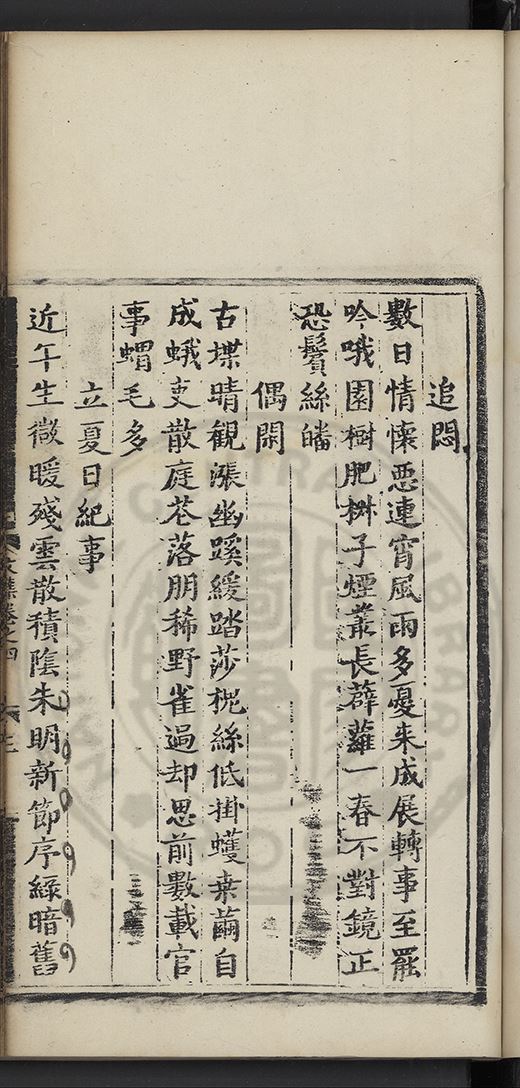 追悶
數日情懷惡連宵風雨多憂来成展轉事至罷
吟哦園樹肥拼子煙叢長薜蘿一春不對鏡正
恐鬢絲皤
偶閒
古堞晴観漲幽蹊緩踏莎桅絲低掛蠖桒繭自
成蛾吏散庭苍落朋稀野雀過却思前數載官
事蝟毛多
立夏日紀事
近午生微暖殘雲散積陰朱明新節序緑暗舊
文集卷之四